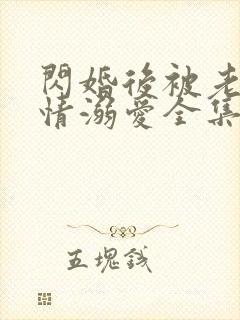 閃婚後被老
情溺愛全集
五塊錢